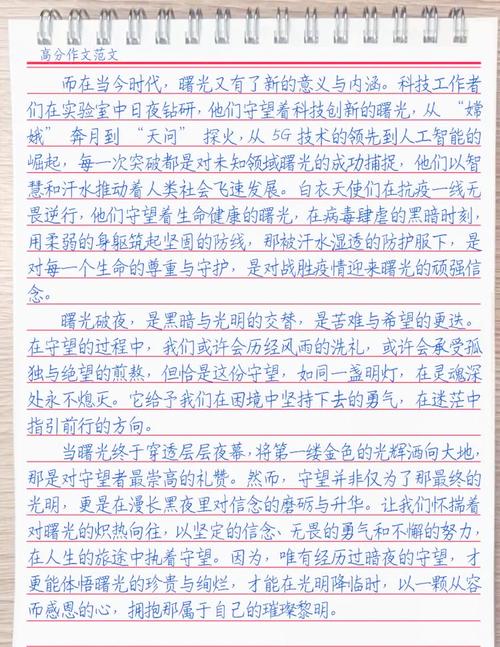 高分作文范文
而在当今时代，曙光又有了新的意义与内涵。科技工作者
们在实验室中日夜钻研，他们守望着科技创新的曙光，从“嫦
娥”奔月到“天问”探火，从5G技术的领先到人工智能的
崛起，每一次突破都是对未知领域曙光的成功捕捉，他们以智
慧和汗水推动着人类社会飞速发展。白衣天使们在抗疫一线无
畏逆行，他们守望着生命健康的曙光，在病毒肆虐的黑暗时刻，
用柔弱的身躯筑起坚固的防线，那被汗水湿透的防护服下，是
对每一个生命的尊重与守护，是对战胜疫情迎来曙光的顽强信
念。
曙光破夜，是黑暗与光明的交替，是苦难与希望的更迭。
在守望的过程中，我们或许会历经风雨的洗礼，或许会承受孤
独与绝望的煎熬，但恰是这份守望，如同一盏明灯，在灵魂深
处永不熄灭。它给予我们在困境中坚持下去的勇气，在迷茫中
指引前行的方向。
当曙光终于穿透层层夜幕，将第一缕金色的光辉洒向大地，
那是对守望者最崇高的礼赞。然而，守望并非仅为了那最终的
光明，更是在漫长黑夜里对信念的磨砺与升华。让我们怀揣着
对曙光的炽热向往，以坚定的信念、无畏的勇气和不懈的努力，
在人生的旅途中执着守望。因为，唯有经历过暗夜的守望，才
更能体悟曙光的珍贵与绚烂，才能在光明降临时，以一颗从容
而感恩的心，拥抱那属于自己的璀璨黎明。